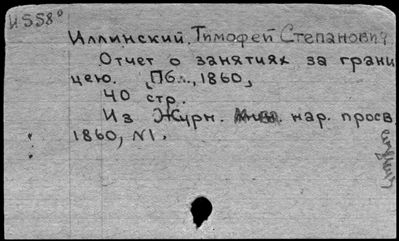 И558°
Иллинский, Тимофей Степанович
Отчет о занятиях за грани
цею. Пб., 1860,
40 стр.
Из Журн. нар. просв
1860, N1.